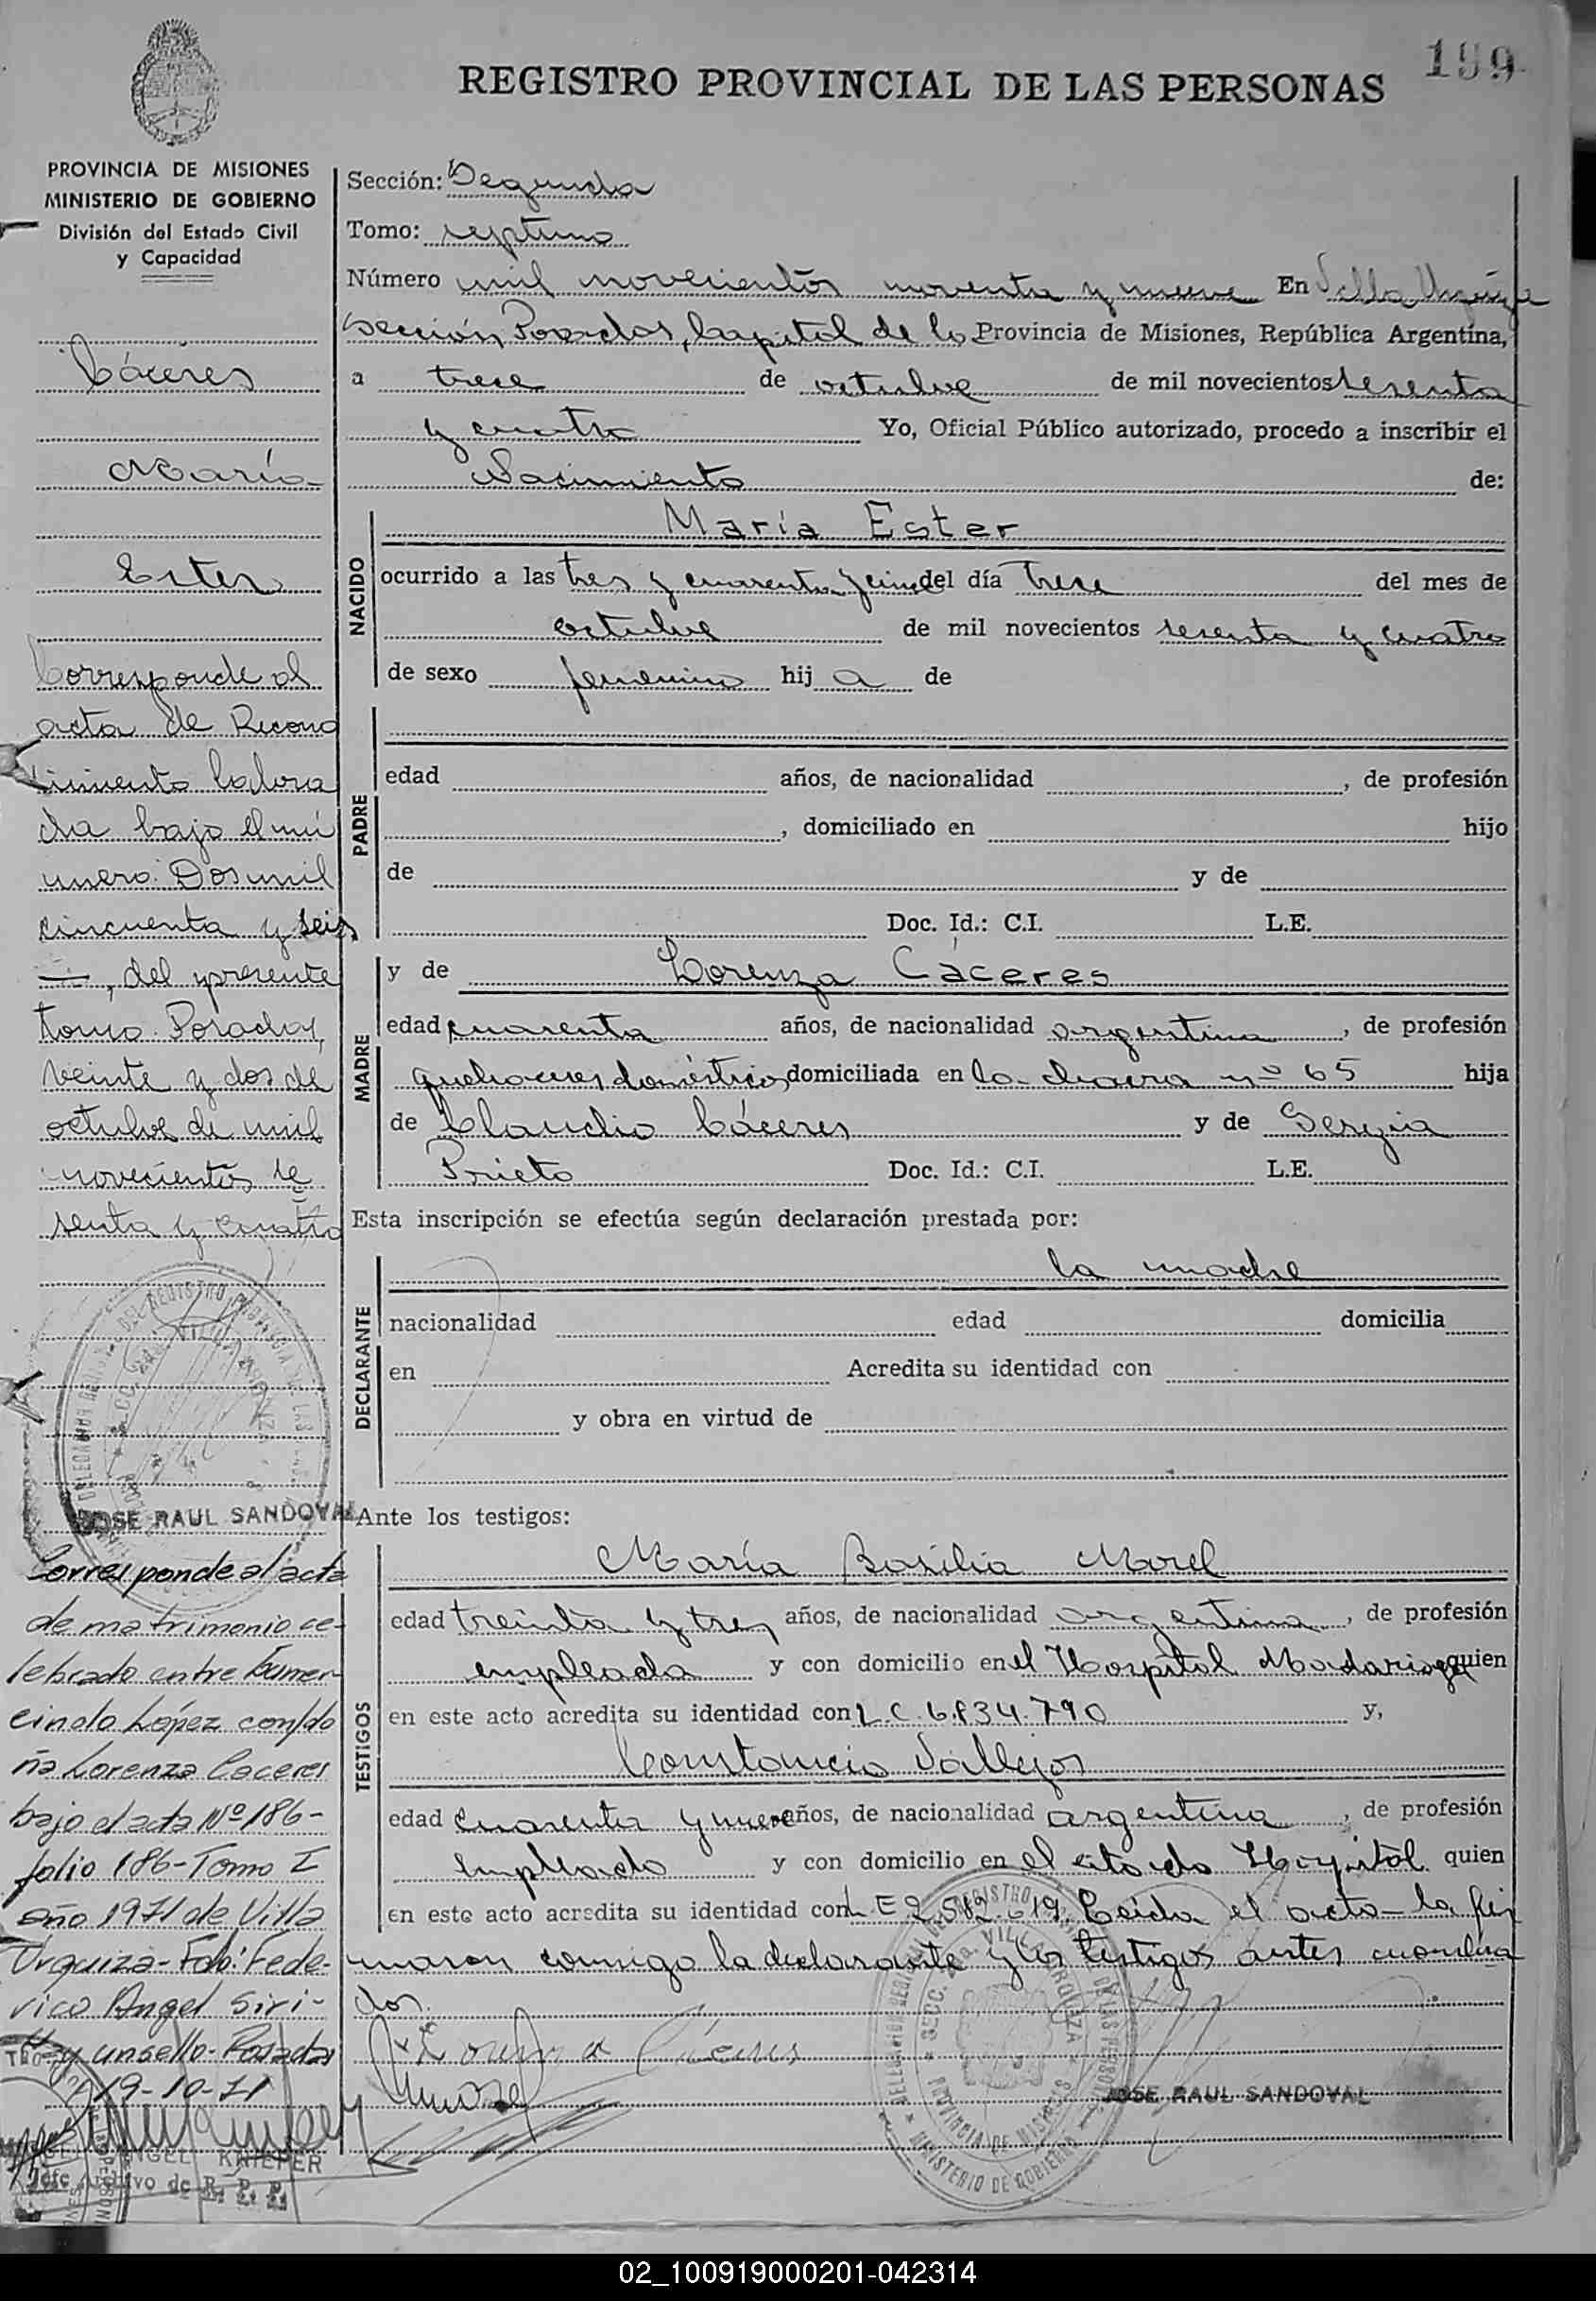 199
REGISTRO PROVINCIAL DE LAS PERSONAS
PROVINCIA DE MISIONES
MINISTERIO DE GOBIERNO
División del Estado Civil
y Capacidad
Cáceres
María
Ester
Corresponde al
acta de Recono
cimiento labra
da bajo el nú
mero: Dos mil
cincuenta y seis
, del presente
tomo. Posadas,
veinte y dos de
octubre de mil
novecientos se
senta y cuatro
JOSE RAUL SANDOVAL
Corresponde al acta
de matrimonio ce-
lebrado entre Gumer-
cindo López con do
ña Lorenza Caceres
bajo el acta Nº 186-
folio 186-Tomo I
año 1971 de Villa
Urquiza- Fdo: Fede-
rico Angel Siri-
y un sello- Posadas
19-10-71
ANGEL KNIEPER
Jefe Archivo de R. P. P.
Sección: Segunda
Tomo: septimo
Número mil novecientos noventa y nueve En Villa Urquiza
Sección Posadas, Capital de la Provincia de Misiones, República Argentina,
a trece de octubre de mil novecientos sesenta
y cuatro Yo, Oficial Público autorizado, procedo a inscribir el
Nacimiento de:
NACIDO
María Ester
ocurrido a las tres y cuarenta y cinco del día trece del mes de
octubre de mil novecientos sesenta y cuatro
de sexo femenino hij a de
PADRE
edad años, de nacionalidad , de profesión
, domiciliado en hijo
de y de
Doc. Id.: C.I. L.E.
MADRE
y de Lorenza Cáceres
edad cuarenta años, de nacionalidad argentina , de profesión
quehaceres domésticos domiciliada en la chacra nº 65 hija
de Claudio Cáceres y de Sergia
Prieto Doc. Id.: C.I. L.E.
Esta inscripción se efectúa según declaración prestada por:
DECLARANTE
la madre
nacionalidad edad domicilia
en Acredita su identidad con
y obra en virtud de
Ante los testigos:
TESTIGOS
María Basilia Morel
edad treinta y tres años, de nacionalidad argentina , de profesión
empleada y con domicilio en el Hospital Madariaga quien
en este acto acredita su identidad con L.C. 6.834.790 y,
Constancio Vallejos
edad cuarenta y nueve años, de nacionalidad argentina , de profesión
empleado y con domicilio en el citado Hospital quien
en este acto acredita su identidad con L E 2.512.619. Leída el acta la fir
maron conmigo la declarante y los testigos antes nombra
dos.
Lorenza Cáceres
JOSE RAUL SANDOVAL
02_100919000201-042314